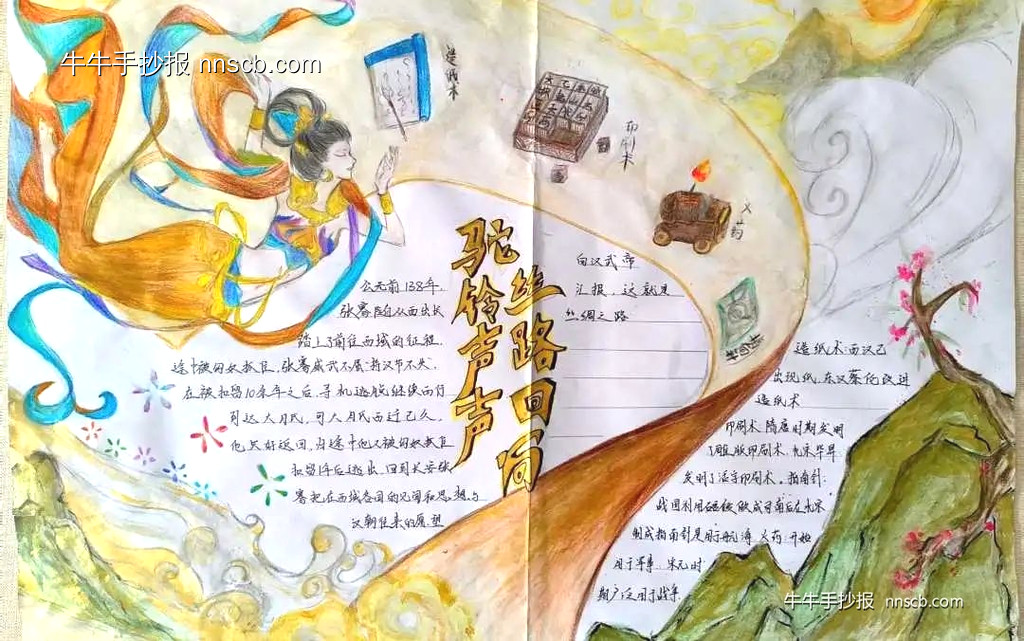 牛牛手抄报 nnscb.com
造纸术
印刷术
火药
指南针
驼铃声声
丝路回向
公元前138年,
张骞自从西出长
踏上了前往西域的征程,
途中被匈奴抓住,张骞威武不屈"持汉节不失"
在被扣留10余年之后,寻机逃脱继续西行
到达大月氏,可大月氏西迁已久,
他只好返回,当途中他又被匈奴抓住
扣留
后逃出,回到长安张
骞把在西域各国的见闻和思想与
汉朝往来的愿望
向汉武帝
汇报,这就是
丝绸之路
造纸术:西汉已
出现纸,东汉蔡伦改进
造纸术
印刷术 隋唐时期发明
了雕版印刷术,北宋毕昇
发明了活字印刷术。指南针:
战国利用磁铁做成司南后在北宋
制成指南针是用于航海 火药:开始
用于军事 宋元时
期广泛用于战争
牛牛手抄报 nnscb.com